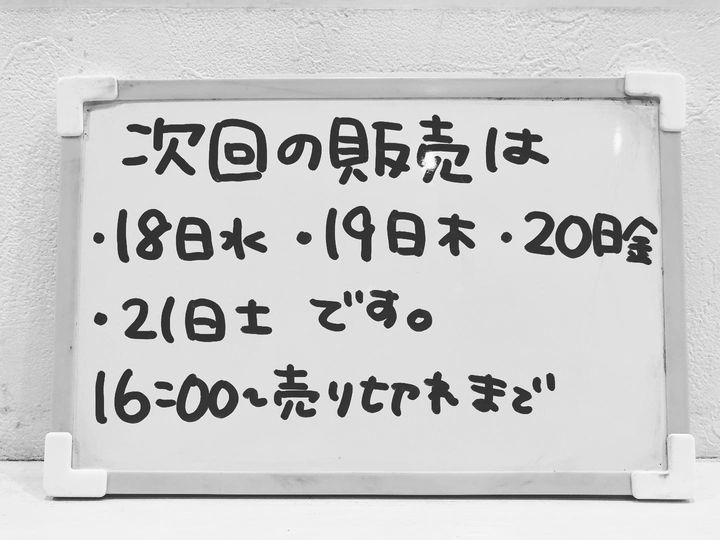 次回の販売は
・18日水 ・19日木 ・20日金
・21日土 です。
16:00~売り切れまで